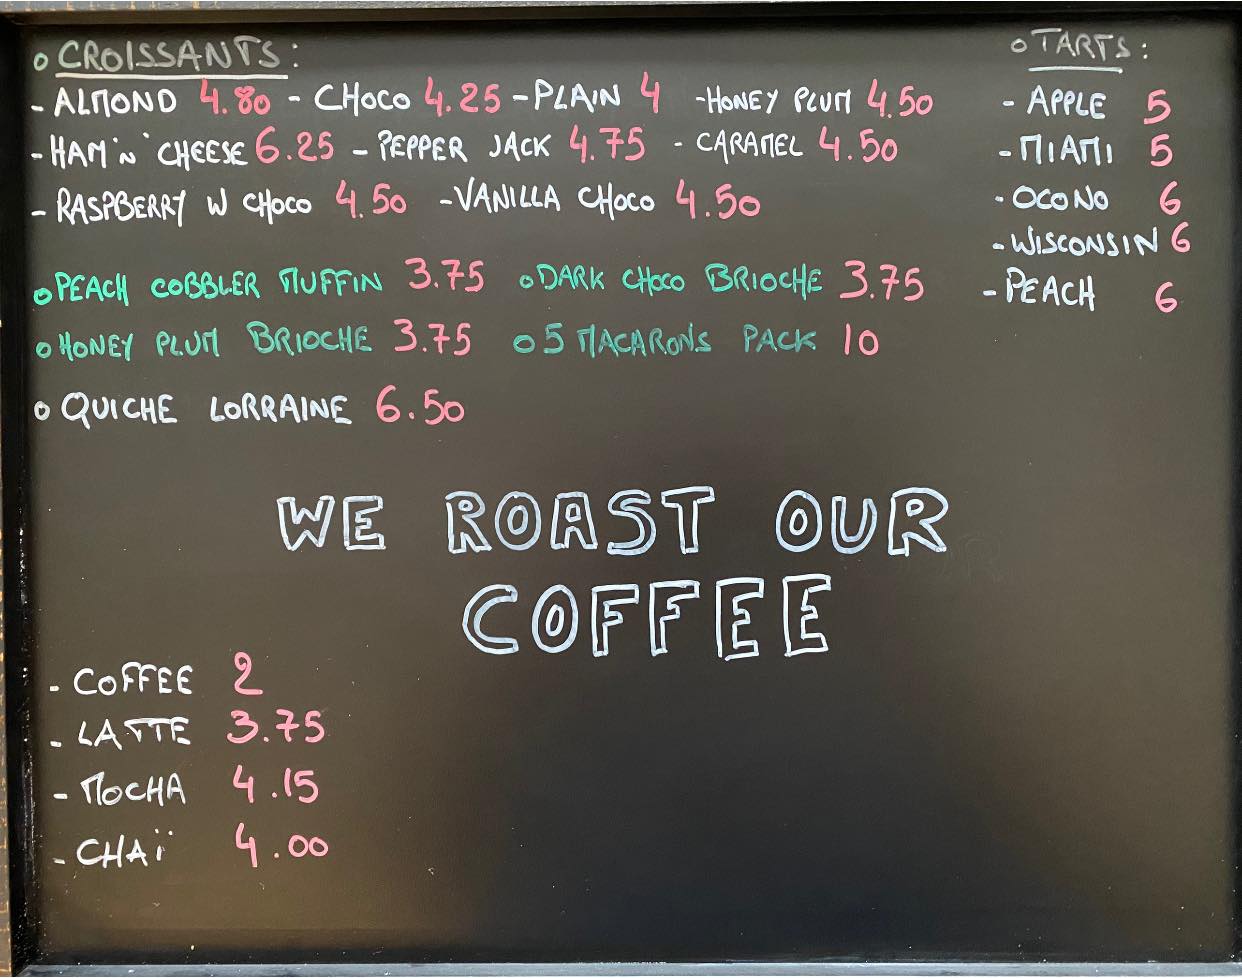 CROISSANTS:
- ALMOND 4.80 - CHOCO 4.25 - PLAIN 4 - HONEY PLUM 4.50
- HAM 'N' CHEESE 6.25 - PEPPER JACK 4.75 - CARAMEL 4.50
- RASPBERRY W CHOCO 4.50 - VANILLA CHOCO 4.50
PEACH COBBLER MUFFIN 3.75 DARK CHOCO BRIOCHE 3.75
HONEY PLUM BRIOCHE 3.75 5 MACARONS PACK 10
QUICHE LORRAINE 6.50
TARTS:
- APPLE 5
- MIAMI 5
- OCONO 6
- WISCONSIN 6
- PEACH 6
WE ROAST OUR
COFFEE
- COFFEE 2
- LATTE 3.75
- MOCHA 4.15
- CHAÏ 4.00